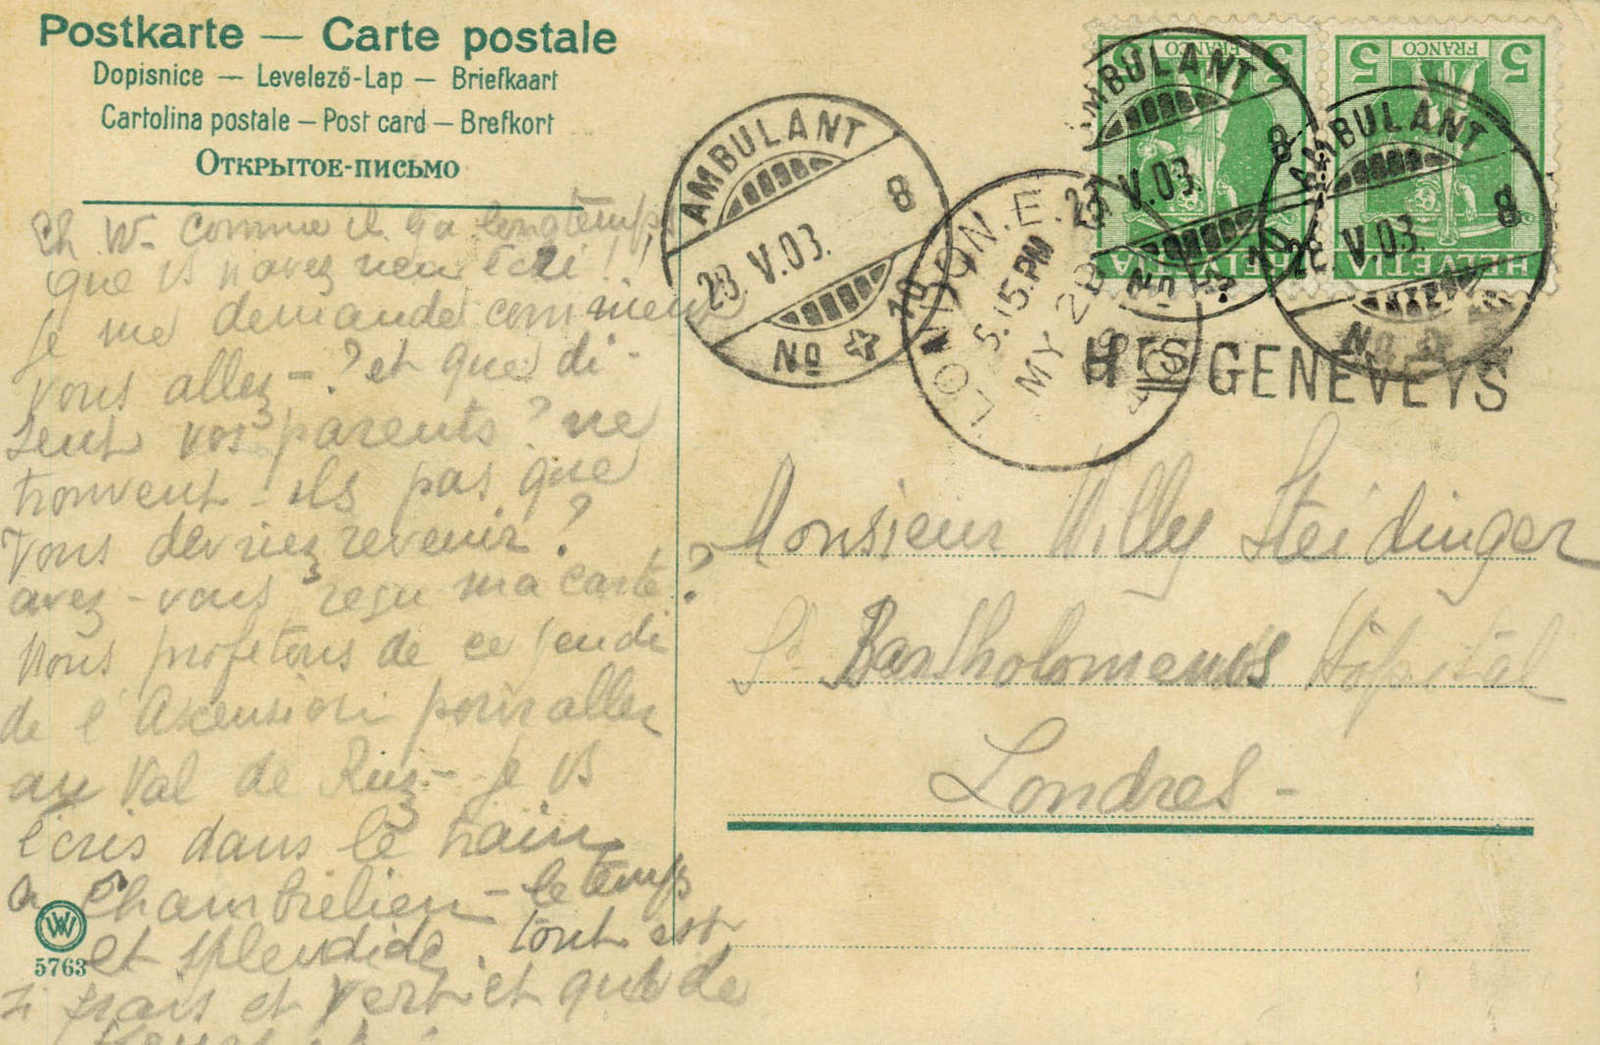 Postkarte — Carte postale
Dopisnice — Levelező-Lap — Briefkaart
Cartolina postale — Post card — Brefkort
Открытое-письмо
Ch W- comme il y a longtemps
que vs n'avez rien écri!!
Je me demande comment
vous allez-? et que di-
sent vos parents? ne
trouvent-ils pas que
vous devriez revenir?
avez-vous reçu ma carte?
Nous profitons de ce jeudi
de l'Ascension pour aller
au Val de Ruz- je vs
écris dans le train
à Chambrelien - le temps
et splendide. tout est
si frais et vert et que de
fleurs
W W
5763
AMBULANT
8
28.V.03.
No 10
LONDON.E.C
5.15.PM
MY 28
03
AMBULANT
8
28.V.03.
No 10
AMBULANT
8
28.V.03.
No
5 FRANCO 5
HELVETIA
5 FRANCO 5
HELVETIA
HTS GENEVEYS
Monsieur Willy Steidinger
St Bartholomeus Hôpital
Londres-